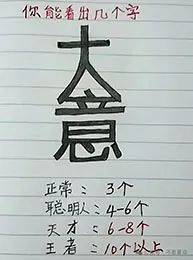 你能看出几个字
大
意
正常：3个
聪明人：4-6个
天才：6-8个
王者：10个以上